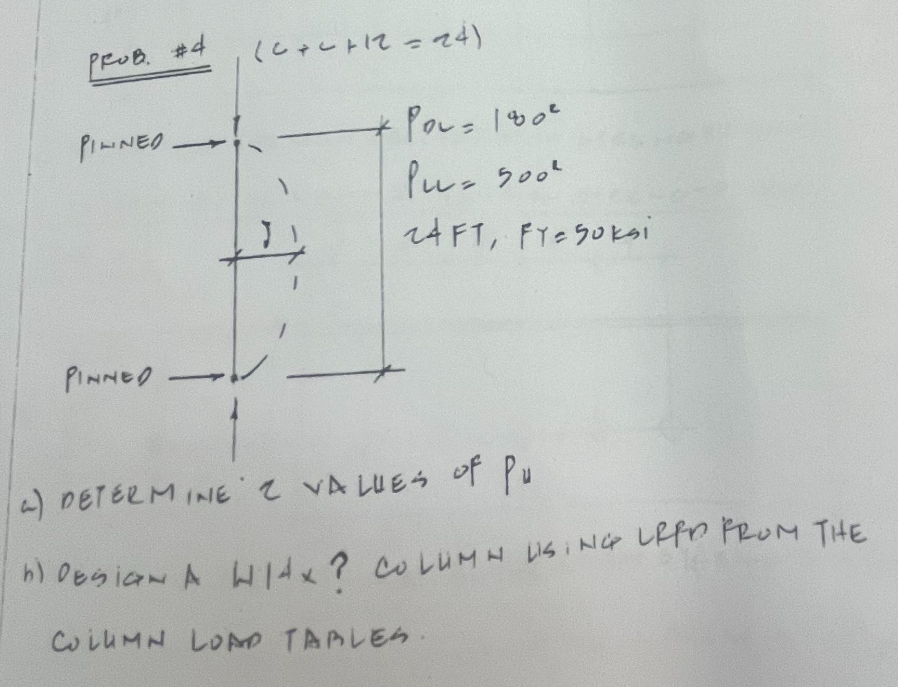 PROB. #4 (6+6+12=24)
PINNED
PDL = 180k
PLL = 500k
24 FT, FY = 50 ksi
PINNED
a) DETERMINE 2 VALUES OF Pu
b) DESIGN A W14x? COLUMN USING LRFD FROM THE
COLUMN LOAD TABLES.